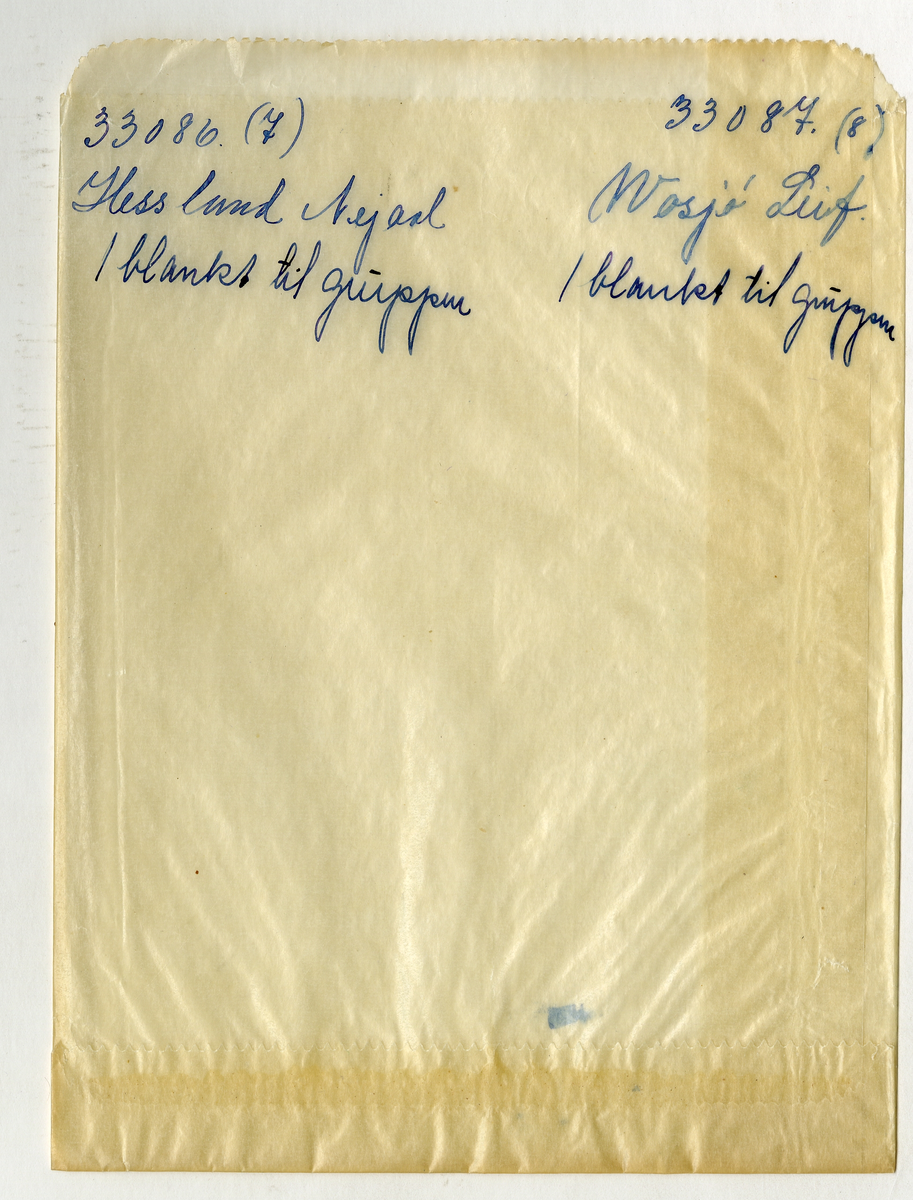 33086. (7)
Hessland Nejaal
1 blankt til gruppen
33087. (8)
Wosjö Leif.
1 blankt til gruppen